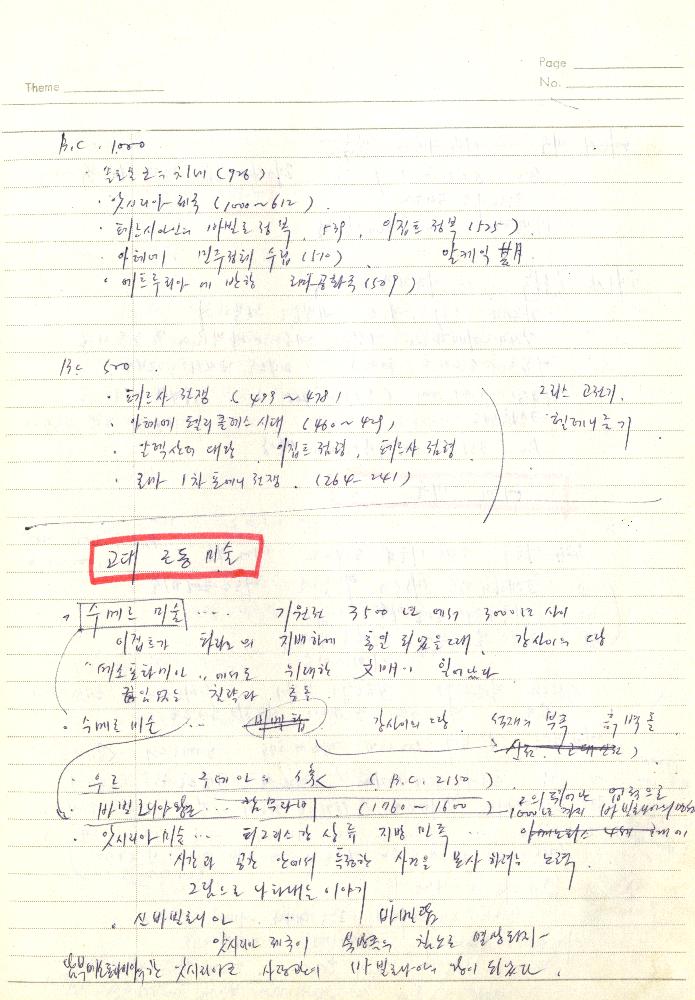 Page
No.
Theme
B.C. 1,000
· 솔로몬의 치세 (926)
· 앗시리아 제국 (1,000~612)
· 페르시아인의 바빌론 정복, 539, 이집트 정복 (525)
· 아테네 민주정체 수립 (510) 알케익
· 에트루리아에 반항 로마공화국 (509)
B.C 500
· 페르샤 전쟁 (499~478)
· 아테네 페리클레스 시대 (460~429)
· 알렉산더 대왕 이집트 점령, 페르샤 점령
· 로마 1차 포에니 전쟁. (264-241)
그리스 고전기.
헬레니즘기
고대 근동 미술
· 수메르 미술 .... 기원전 3500년에서 3000년 사이
이집트가 파라오의 지배하에 통일되었을 때, 강사이의 땅
"메소포타미아"에서도 위대한 文明이 일어났다
끊임없는 침략과 충돌
· 수메르 미술 ... 바벨탑 강사이의 땅. 석재의 부족. 흙벽돌
· 우르 구데아의 像 (B.C. 2150)
· 바빌로니아왕조 ... 함무라비 (1760~1600) 그의 뛰어난 업적으로
· 앗시리아미술 ... 티그리스강 상류 지방 민족
시간과 공간 안에서 특정한 사건을 묘사하려는 노력.
그림으로 나타내는 이야기
· 신바빌로니아 ... 바벨탑
앗시리아 제국이 침노로 멸망되자-
앗시리아로 바빌로니아의 왕이 되었다.